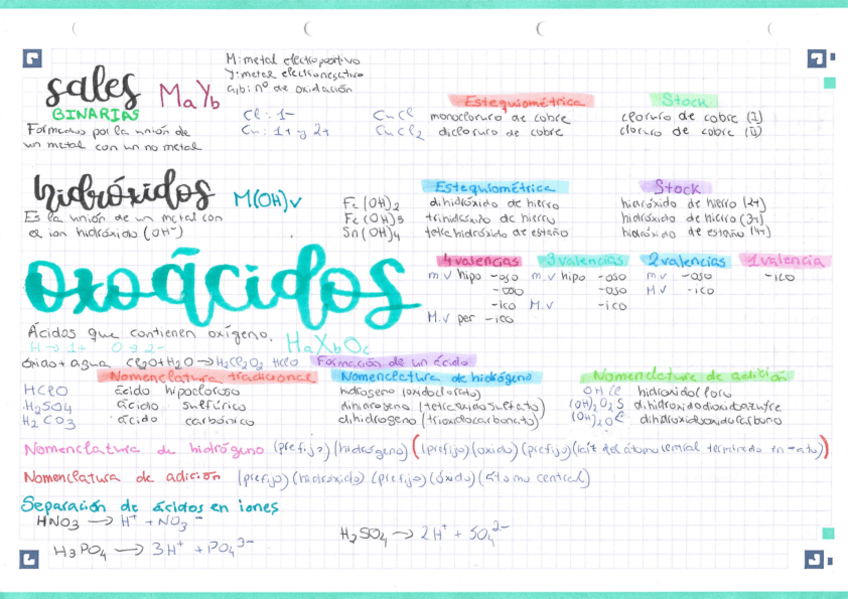 sales
BINARIAS
MaYb
M: metal electropositivo
Y: metal electronegativo
a,b: nº de oxidación
Formados por la unión de
un metal con un no metal
Cl: 1-
Cu: 1+ y 2+
Estequiométrica
Stock
CuCl monocloruro de cobre cloruro de cobre (I)
CuCl2 dicloruro de cobre cloruro de cobre (II)
hidróxidos
M(OH)v
Es la unión de un metal con
el ion hidróxido (OH-)
Estequiométrica
Stock
Fe(OH)2 dihidróxido de hierro hidróxido de hierro (2+)
Fe(OH)3 trihidróxido de hierro hidróxido de hierro (3+)
Sn(OH)4 tetrahidróxido de estaño hidróxido de estaño (4+)
oxoácidos
4 valencias 3 valencias 2 valencias 1 valencia
m.v hipo -oso m.v hipo -oso m.v -oso -ico
-oso -oso M.v -ico
-ico M.v -ico
M.v per -ico
Ácidos que contienen oxígeno.
HaXbOc
H → 1+ O → 2-
óxido + agua Cl2O+H2O → H2Cl2O2 HClO Formación de un ácido
Nomenclatura tradicional Nomenclatura de hidrógeno Nomenclatura de adición
HClO ácido hipocloroso hidrogeno (oxidoclorato) OHCl hidroxidocloro
H2SO4 ácido sulfúrico dihidrogeno (tetraoxidosulfato) (OH)2O2S dihidroxidodioxidoazufre
H2CO3 ácido carbónico dihidrogeno (trioxidocarbonato) (OH)2OC dihidroxidooxidocarbono
Nomenclatura de hidrógeno (prefijo)(hidrógeno)((prefijo)(oxido)(prefijo)(raíz del átomo central terminado en -ato))
Nomenclatura de adición (prefijo)(hidróxido)(prefijo)(óxido)(átomo central)
Separación de ácidos en iones
HNO3 → H+ + NO3-
H2SO4 → 2H+ + SO4 2-
H3PO4 → 3H+ + PO4 3-